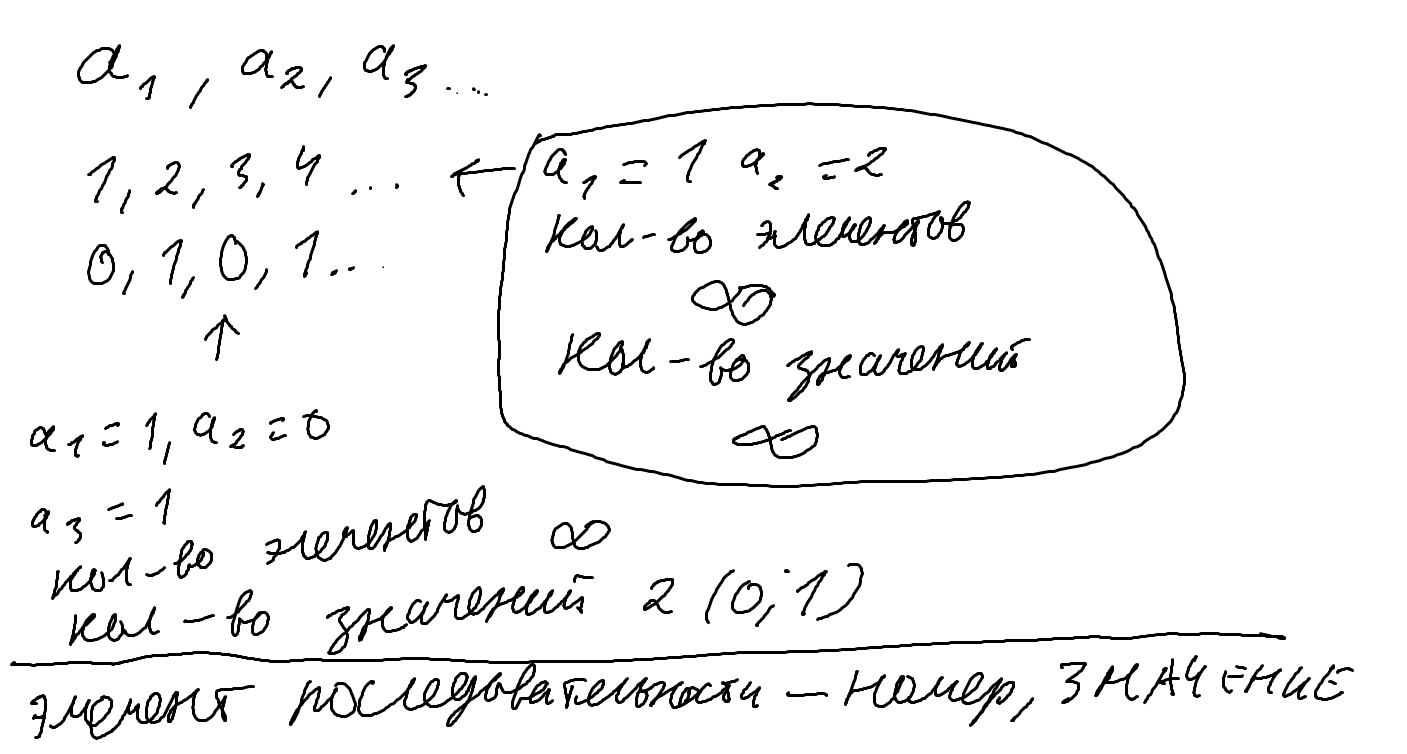 a₁, a₂, a₃ ....
1, 2, 3, 4 ...
0, 1, 0, 1 ...
←
a₁ = 1 a₂ = 2
кол-во элементов
∞
кол-во значений
∞
↑
a₁ = 1, a₂ = 0
a₃ = 1
кол-во элементов ∞
кол-во значений 2 (0; 1)
элемент последывательности – номер, ЗНАЧЕНИЕ